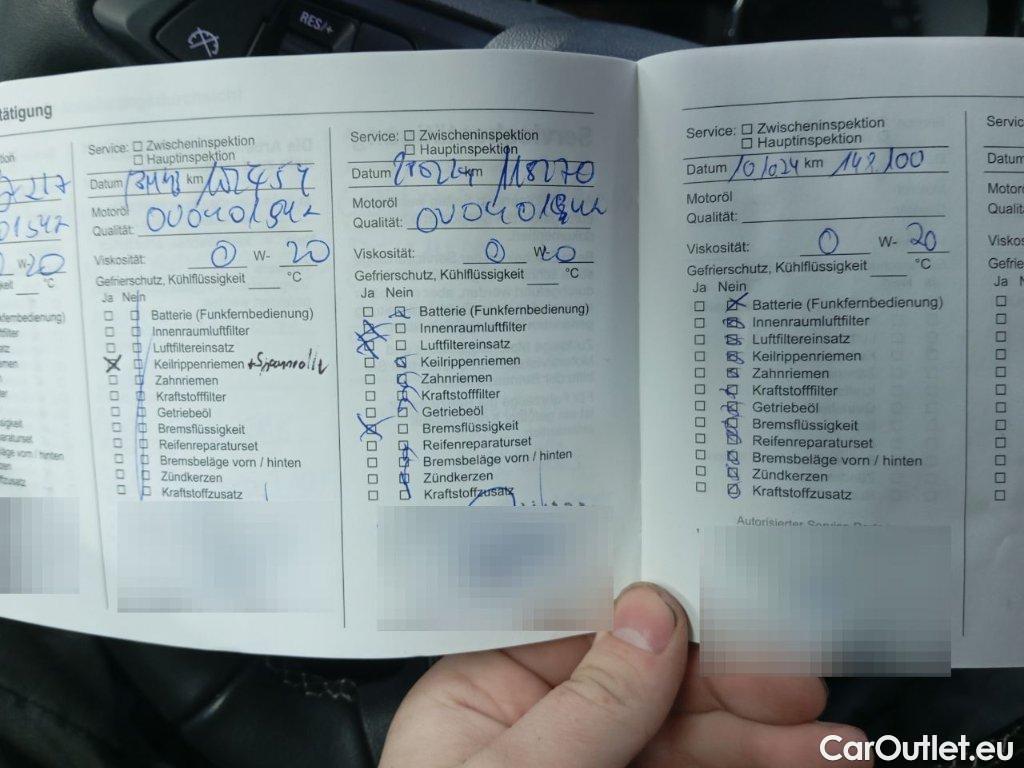 RES/+
tätigung
217
W- 20
°C
Service: ☐ Zwischeninspektion
☐ Hauptinspektion
Datum km 102454
Motoröl
Qualität: OV0401547
Viskosität: 0 W- 20
Gefrierschutz, Kühlflüssigkeit °C
Ja Nein
Batterie (Funkfernbedienung)
Innenraumluftfilter
Luftfiltereinsatz
Keilrippenriemen + Spannrolle
Zahnriemen
Kraftstofffilter
Getriebeöl
Bremsflüssigkeit
Reifenreparaturset
Bremsbeläge vorn / hinten
Zündkerzen
Kraftstoffzusatz
Service: ☐ Zwischeninspektion
☐ Hauptinspektion
Datum km 118270
Motoröl
Qualität: OV0401547
Viskosität: 0 W-
Gefrierschutz, Kühlflüssigkeit °C
Ja Nein
Batterie (Funkfernbedienung)
Innenraumluftfilter
Luftfiltereinsatz
Keilrippenriemen
Zahnriemen
Kraftstofffilter
Getriebeöl
Bremsflüssigkeit
Reifenreparaturset
Bremsbeläge vorn / hinten
Zündkerzen
Kraftstoffzusatz
Service: ☐ Zwischeninspektion
☐ Hauptinspektion
Datum km 143.100
Motoröl
Qualität:
Viskosität: 0 W- 20
Gefrierschutz, Kühlflüssigkeit °C
Ja Nein
Batterie (Funkfernbedienung)
Innenraumluftfilter
Luftfiltereinsatz
Keilrippenriemen
Zahnriemen
Kraftstofffilter
Getriebeöl
Bremsflüssigkeit
Reifenreparaturset
Bremsbeläge vorn / hinten
Zündkerzen
Kraftstoffzusatz
Autorisierter Service
CarOutlet.eu